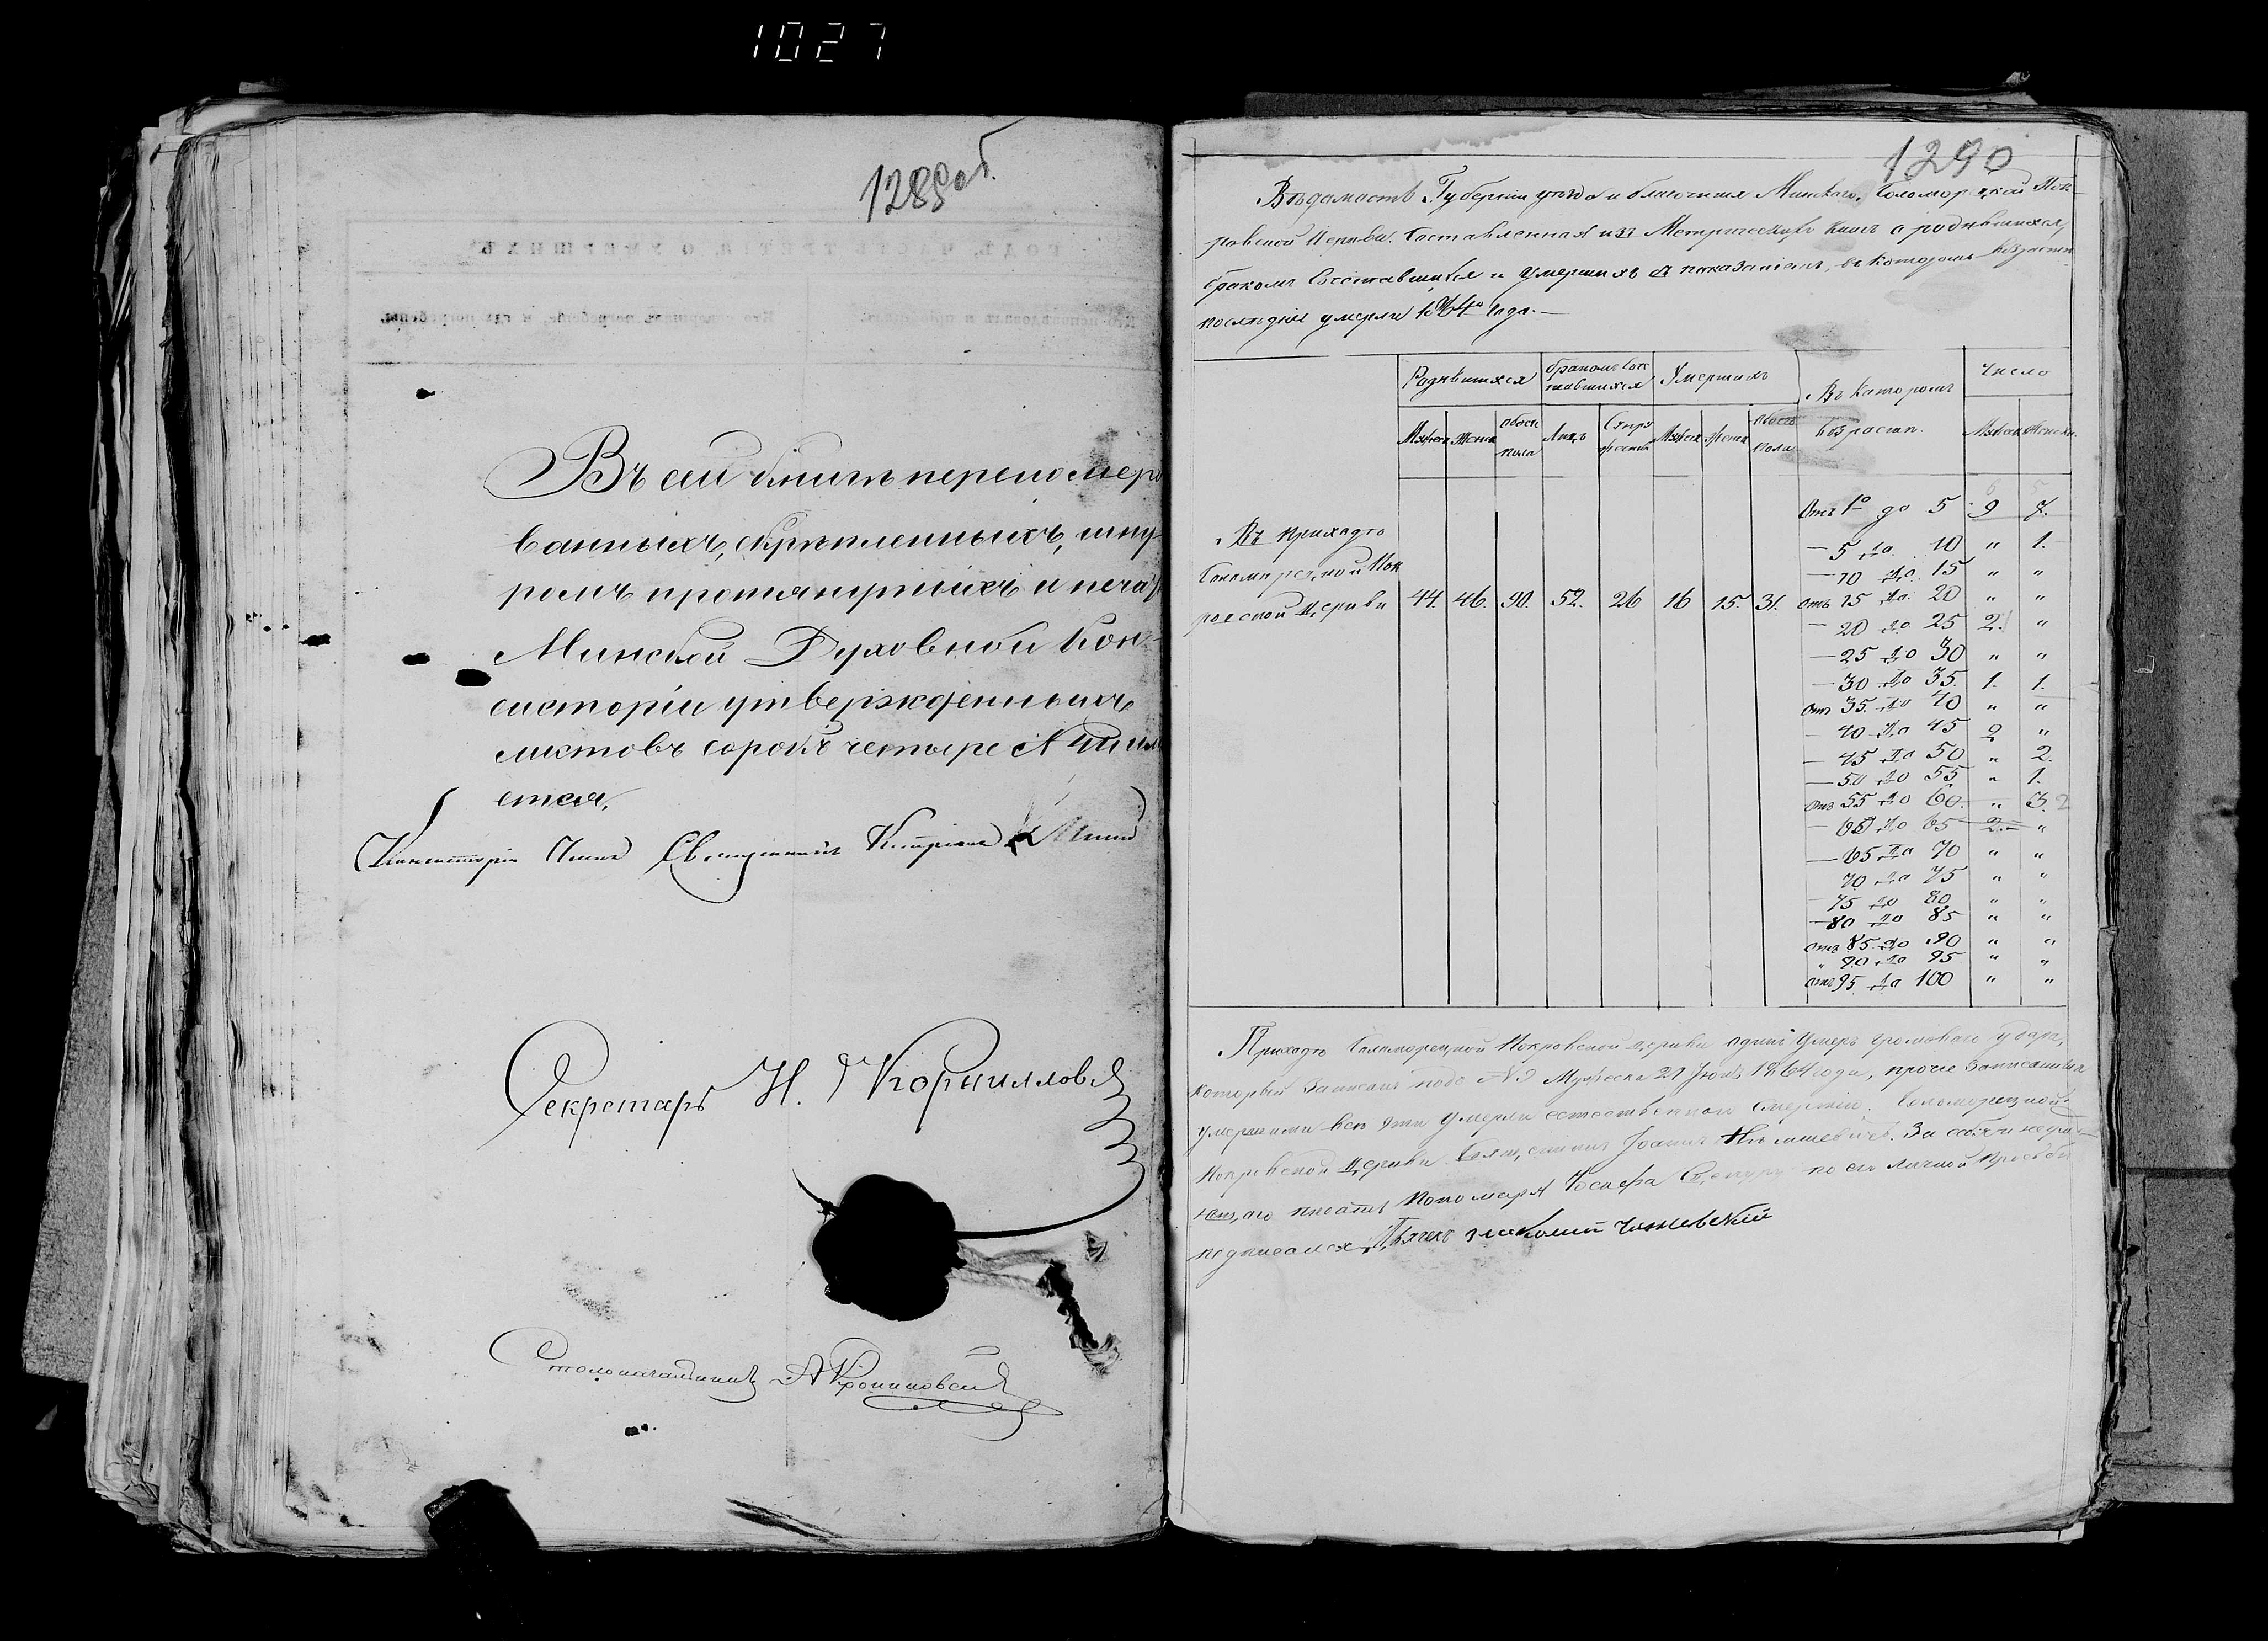 1027
1289 об.
ГОДЪ, ЧАСТЬ ТРЕТІЯ, О УМЕРШИХЪ
Кто погребалъ, и гдѣ погребены.
Въ сей книгѣ перенумеро
ванныхъ, скрѣпленныхъ, шну
ромъ протянутыхъ и печат
Минской Духовной Кон-
систоріи утвержденныхъ
листовъ сорокъ четыре
ется.
Консисторіи Членъ Священникъ
Секретарь Н. Корниловъ
Столоначальникъ А
1290
Вѣдомость Губерніи уѣзда и благочинія Минскаго, Соломорѣцкой Пок
ровской Церкви. Составленная изъ Метрическихъ книгъ о родившихся,
бракомъ Сосставшихся и Умершихъ съ показаніемъ, въ которомъ возрастѣ
послѣдніе умерли 1864го Года.—
Родившихся
бракомъ Сос
тавшихся
Умершихъ
Въ Которомъ
возрастѣ.
Число
Мужеск Женск обоего пола Лицъ Супру жествъ Мужеск Женск обоего пола Мужеск Женск.
Отъ 1го до 5 9 7.
— 5 до 10 " 1.
— 10 до 15 " "
отъ 15 до 20 " "
— 20 до 25 2. "
— 25 до 30 " "
— 30 до 35. 1. 1.
отъ 35. до 40 " "
— 40 до 45 2 "
— 45 до 50 " 2.
— 50 до 55 " 1.
отъ 55 до 60. " 3. 2
— 60 до 65 2. "
— 65 до 70 " "
70 до 75 " "
— 75 до 80 " "
— 80 до 85 " "
отъ 85. до 90 " "
" 90 до 95 " "
отъ 95 до 100 " "
Въ приходѣ
Соломорецкой Пок
ровской Церкви 44. 46. 90. 52. 26 16 15. 31.
Приходѣ Соломорецкой Покровской церкви одинъ Умеръ громоваго удара,
который Записанъ подъ № 9 Мужеска 21 Іюня 1864 года, прочіе Записанныя
умершими всѣ эти Умерли естественною Смертію. Соломорецкой
Покровской Церкви Священникъ Іоаннъ За себя и негра
писать Пономаря Іосифа по его личной просьбѣ
подписался